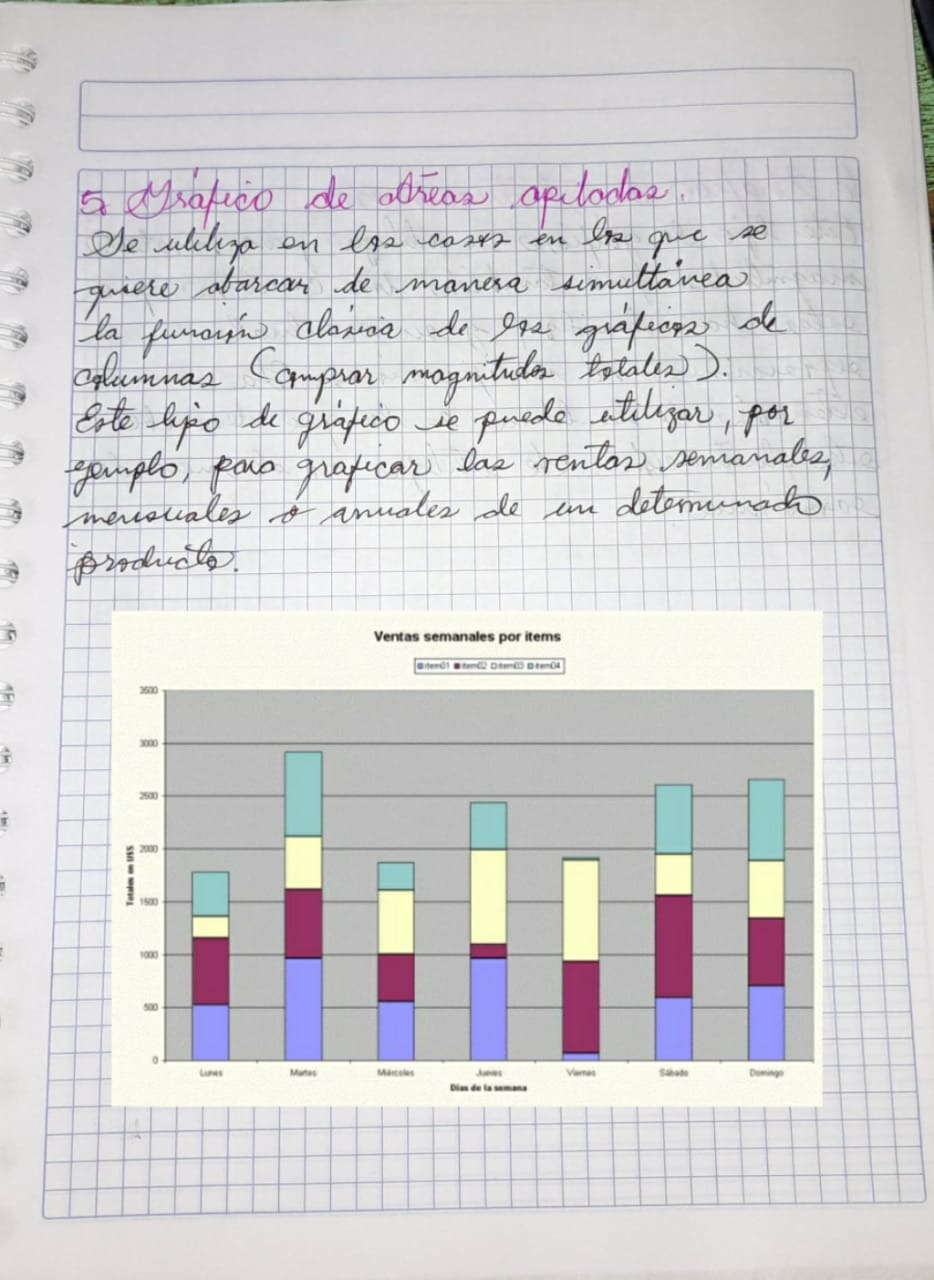 5. Gráfico de atreas apiladas.
Se utiliza en los casos en los que se
quiere abarcar de manera simultánea
la función clásica de los gráficos de
columnas (comprar magnitudes totales).
Este tipo de gráfico se puede utilizar, por
ejemplo, para graficar las ventas semanales,
mensuales o anuales de un determinado
producto.
Ventas semanales por items
item01 item02 item03 item04
3500
3000
2500
2000
1500
1000
500
0
Totales en US$
Lunes Martes Miércoles Jueves Viernes Sábado Domingo
Días de la semana